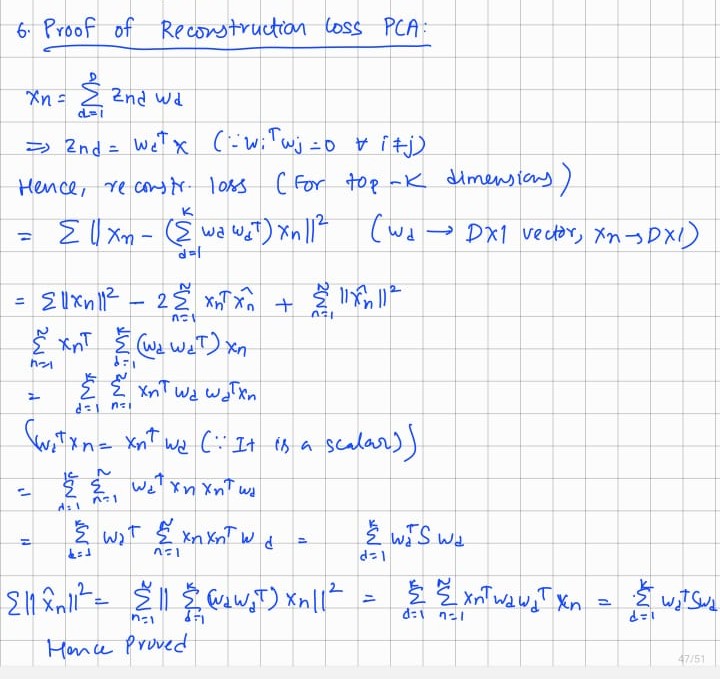 6. Proof of Reconstruction loss PCA:
xn = D Σ d=1 znd wd
⇒ znd = wdᵀ x (∵ wiᵀ wj = 0 ∀ i≠j)
Hence, reconstr. loss (For top-K dimensions)
= Σ || xn - (K Σ d=1 wd wdᵀ) xn||² (wd → DX1 vector, xn → DX1)
= Σ ||xn||² - 2 N Σ n=1 xnᵀ x̂n + N Σ n=1 ||x̂n||²
N Σ n=1 xnᵀ K Σ d=1 (wd wdᵀ) xn
= K Σ d=1 N Σ n=1 xnᵀ wd wdᵀ xn
(wdᵀ xn = xnᵀ wd (∵ It is a scalar))
= K Σ d=1 N Σ n=1 wdᵀ xn xnᵀ wd
= K Σ d=1 wdᵀ N Σ n=1 xn xnᵀ wd = K Σ d=1 wdᵀ S wd
Σ|| x̂n||² = N Σ n=1 || K Σ d=1 (wd wdᵀ) xn||² = K Σ d=1 N Σ n=1 xnᵀ wd wdᵀ xn = K Σ d=1 wdᵀ S wd
Hence Proved
47/51